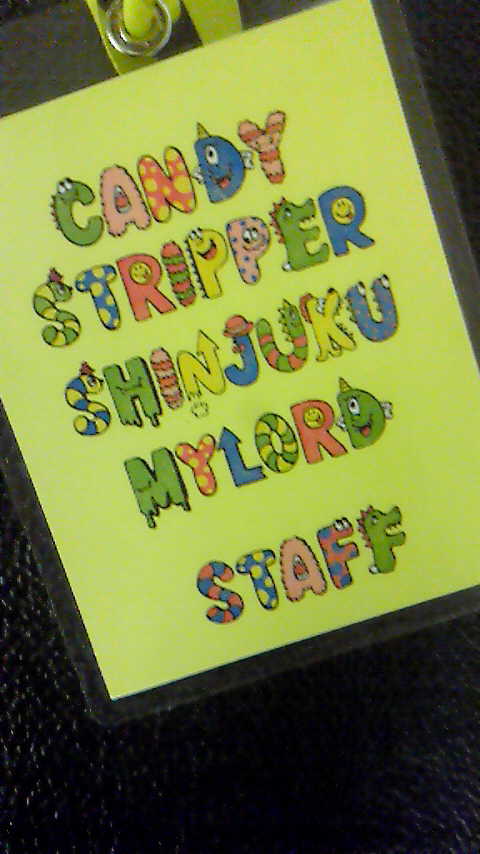 CANDY
STRIPPER
SHINJUKU
MYLORD
STAFF